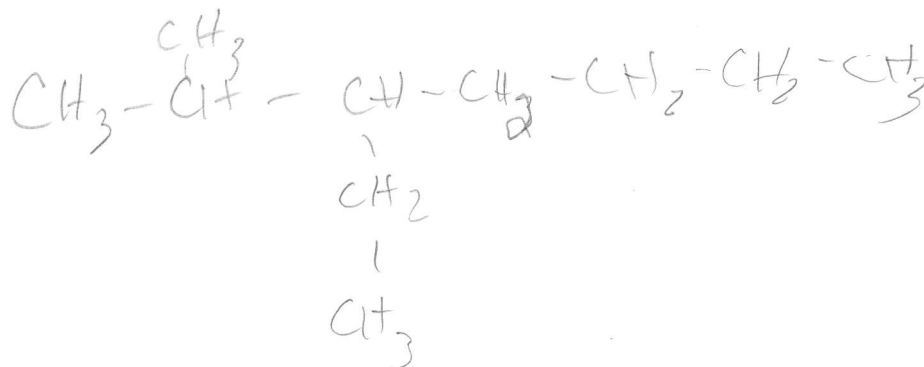 CH3
CH3-CH-CH-CH2-CH2-CH2-CH3
CH2
CH3